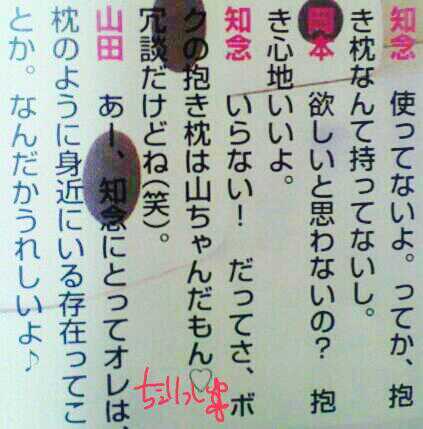 知念　使ってないよ。ってか、抱
き枕なんて持ってないし。
岡本　欲しいと思わないの？　抱
き心地いいよ。
知念　いらない！　だってさ、ボ
クの抱き枕は山ちゃんだもん♡
冗談だけどね(笑)。
山田　あー、知念にとってオレは、
枕のように身近にいる存在ってこ
とか。なんだかうれしいよ♪